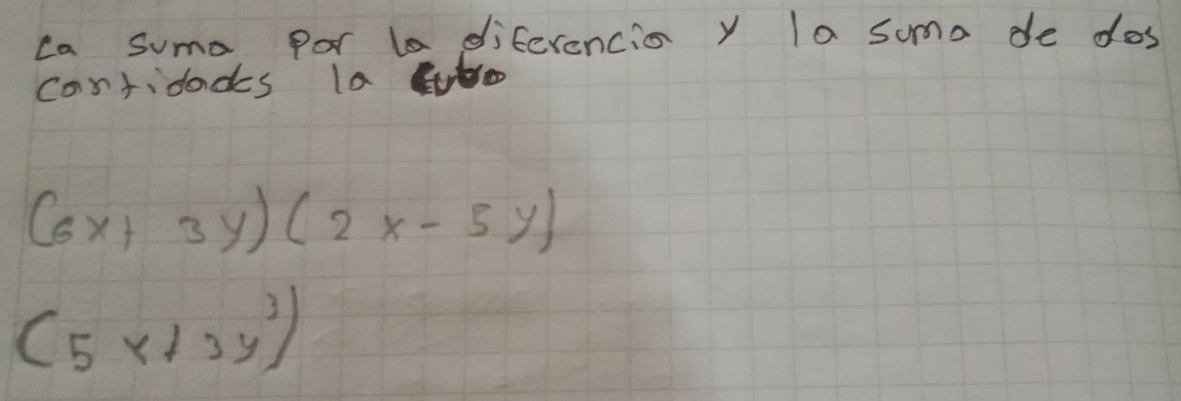 La suma por la diferencia y la suma de dos
cantidades la cubo
(6x+ 3y)(2x-5y)
(5x+3y³)